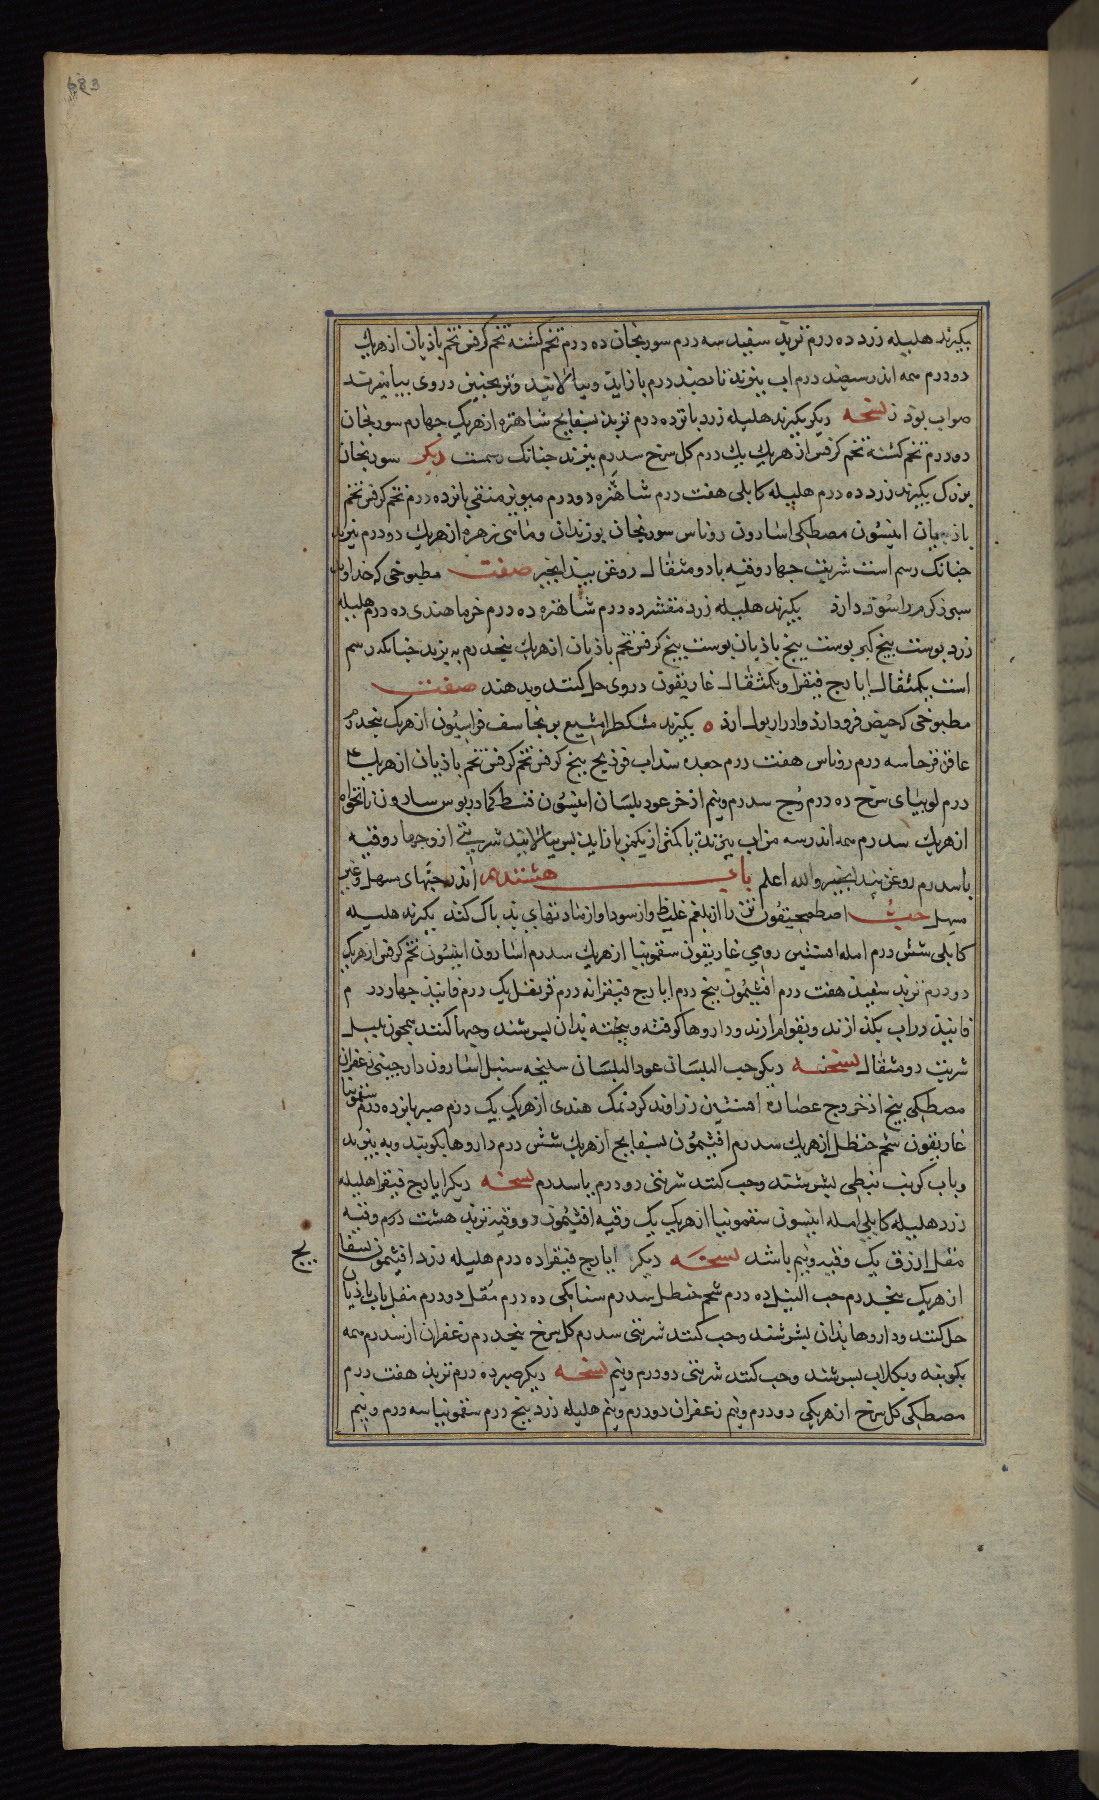 683
بکیرند هلیله زرد ده درم تربد سفید سه درم سورنجان ده درم تخم کشنه تخم کرفس تخم باذیان از هریک
دو درم همه اندر سیصد درم اب بپزند تا بصد درم باز اید و بپالایند و ترنجبین در وی بیامیزند
صواب بود نسخه دیکر بکیرند هلیله زرد پانزده درم تربد بسفایج شاهتره از هریک چهارم سورنجان
دو درم تخم کشنه تخم کرفس از هریک یک درم کل سرخ سه درم بپزند جنانک رسمست دیکر سورنجان
بزرک بکیرند زرد ده درم هلیله کابلی هفت درم شاهتره دو درم میویز منقی پانزده درم تخم کرفس تخم
باذیان انیسون مصطکی اسارون روناس سورنجان بوزیدان و ماهی زهره از هریک دو درم بپزند
جنانک رسم است شربت چهار وقیه با دو مثقال روغن بیدانجیر صفت مطبوخی که خداوند
سپرز کرم را سود دارد بکیرند هلیله زرد مقشر ده درم شاهتره ده درم خرما هندی ده درم هلیله
زرد پوست بیخ کبر پوست بیخ باذیان پوست بیخ کرفس تخم باذیان از هریک پنجدرم بپزند جنانکه رسم
است یکمثقال ایارج فیقرا و یکمثقال غاریقون در وی حل کنند و بدهند صفت
مطبوخی که حیض فرود ارد و ادرار بول ارد ه بکیرند مشکطرامشیع برنجاسف فراسیون از هریک پنجدرم
عاقرقرحا سه درم روناس هفت درم جعده سداب فوذنج بیخ کرفس تخم کرفس تخم باذیان از هریک
درم لوبیای سرخ ده درم وج سه درم و نیم اذخر عود بلسان انیسون قسط کمادریوس سارون نانخواه
از هریک سه درم همه اندر سه من اب بپزند تا بکمتر از یکمن باز اید بس بپالایند شربتی از و جهار وقیه
با سه درم روغن بیدانجیر والله اعلم باب هشتدهم اندر حبهای مسهل و غیر
مسهل حب اصطمحیقون تن را از بلغم غلیظ و از سودا و از مادتهای بد باک کند بکیرند هلیله
کابلی شش درم امله افسنتین رومی غاریقون سقمونیا از هریک سه درم اسارون انیسون تخم کرفس از هریک
دو درم تربد سفید هفت درم افتیمون پنج درم ایارج فیقرا نه درم قرنفل یک درم فانیذ چهار درم
فانیذ در اب بکذازند و بقوام ارند و داروها کوفته و بیخته بذان بسرشند و حبها کنند همچون پلپل
شربت دو مثقال نسخه دیکر حب البلسان عود البلسان سلیخه سنبل اسارون دارجینی زعفران
مصطکی بیخ اذخر وج عصاره افسنتین زراوند کرد نمک هندی از هریک یک درم صبر پانزده درم سقمونیا
غاریقون شحم حنظل از هریک سه درم افتیمون بسفایج از هریک شش درم داروها بکوبند و بپزند
و باب کرنب نبطی بسرشند و حب کنند شربتی دو درم یا سه درم نسخه دیکر ایارج فیقرا هلیله
زرد هلیله کابلی امله انیسون سقمونیا از هریک یک وقیه افتیمون دو وقیه تربد هشت درم وقیه
مقل ازرق یک وقیه و نیم باشد نسخه دیکر ایارج فیقرا ده درم هلیله زرد افتیمون بسفا
یج
از هریک پنجدرم حب النیل ده درم شحم حنظل سه درم سنا مکی ده درم مقل دو درم مقل باب باذیان
حل کنند و داروها بذان بسرشند و حب کنند شربتی سه درم کل سرخ پنجدرم زعفران از سه درم همه
بکوبند و بکلاب بسرشند و حب کنند شربتی دو درم و نیم نسخه دیکر صبر ده درم تربد هفت درم
مصطکی کل سرخ از هریکی دو درم و نیم زعفران دو درم و نیم هلیله زرد پنج درم سقمونیا سه درم و نیم